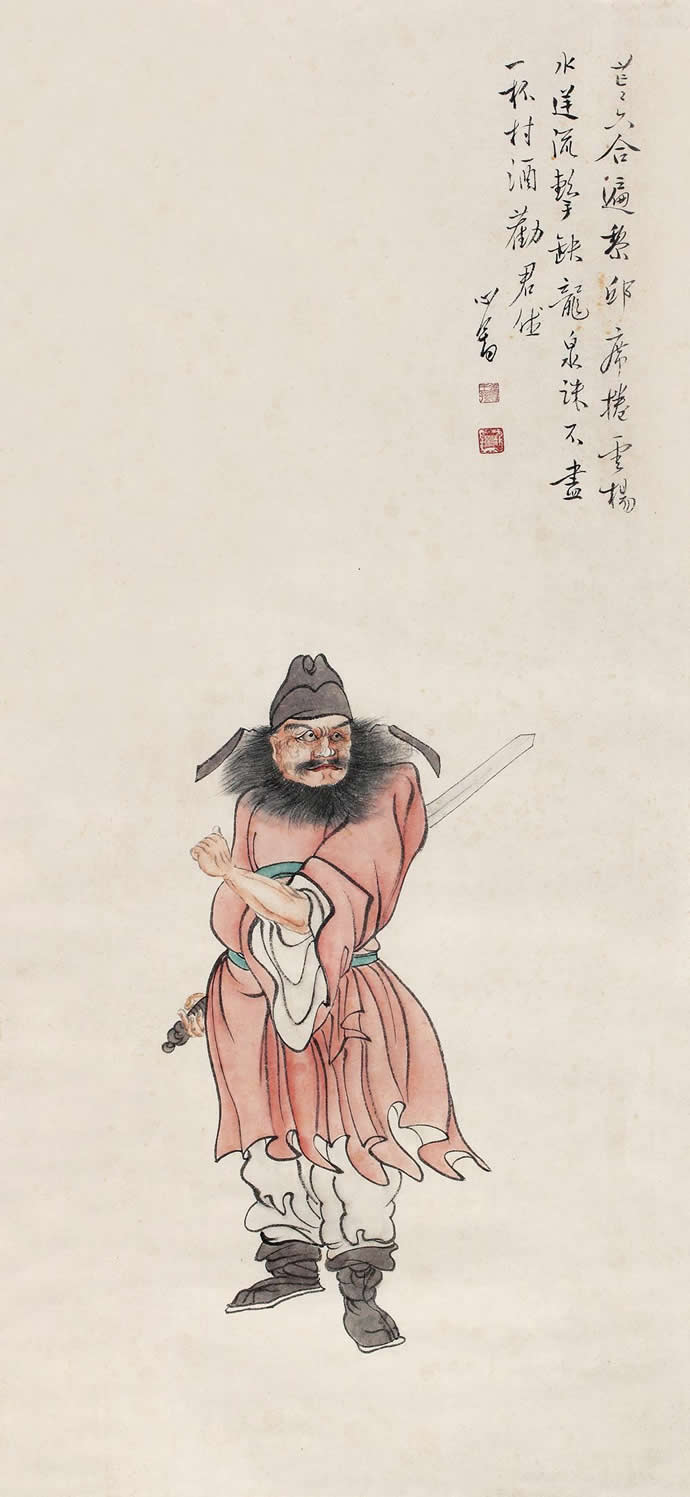 芒〻六合遍黎邱席捲雲楊
水逆流擊缺龍泉誅不盡
一杯村酒勸君休
心畬